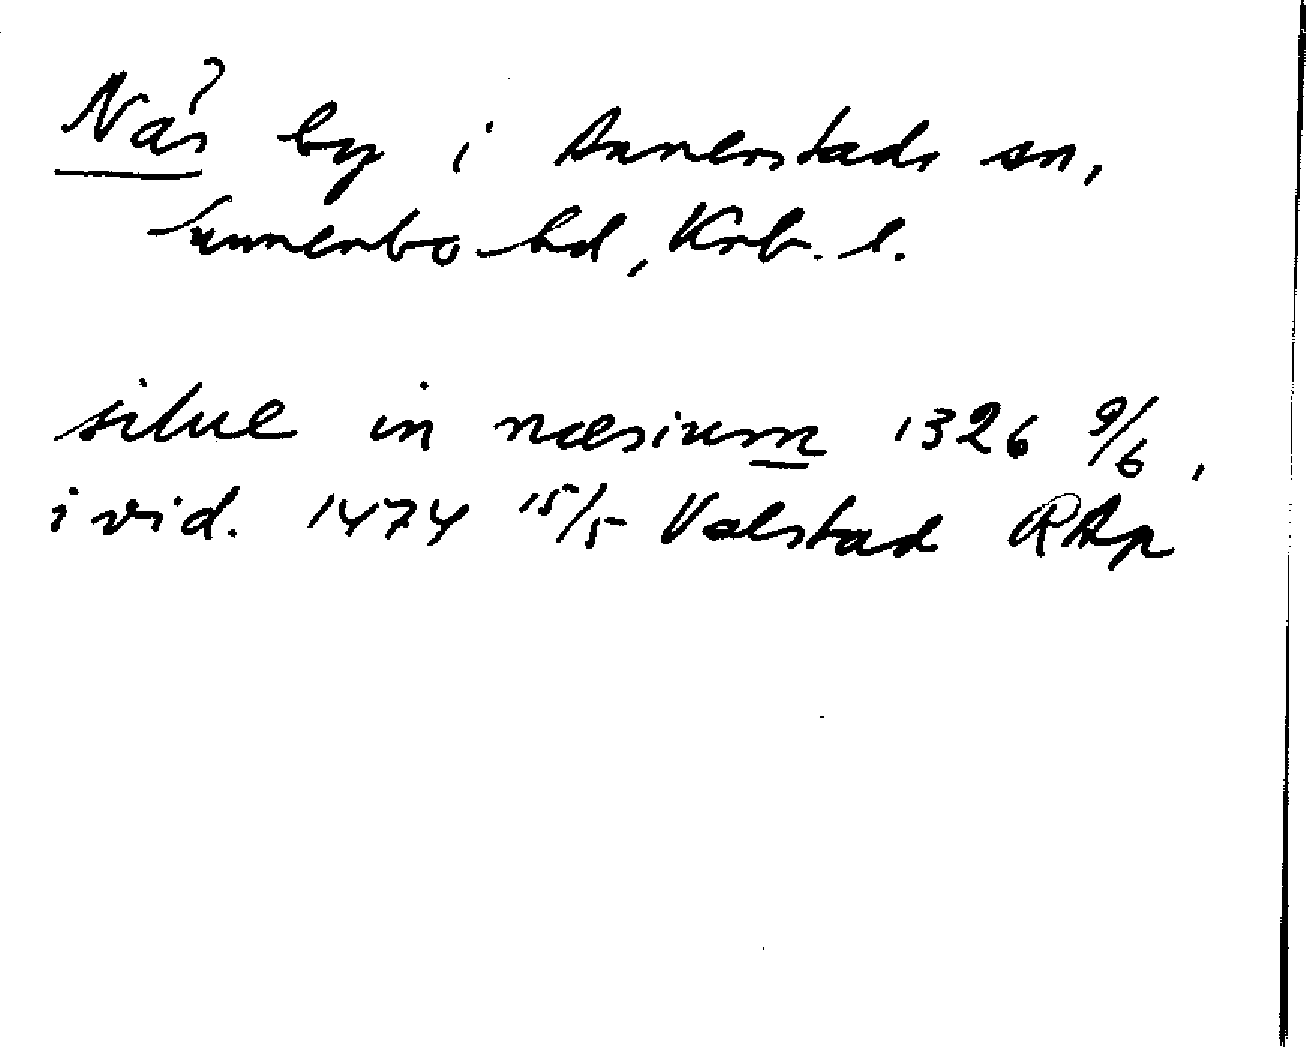 Näs? by i Annerstads sn,
Sunnerbo hd, Krb. l.
silue in næsium 1326 9/6,
i vid. 1474 15/5 Valstad RAp